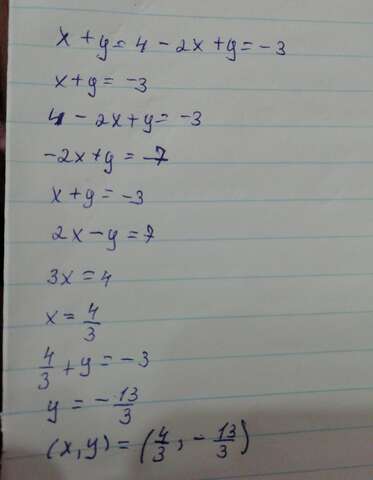 x + y = 4 - 2x + y = -3
x + y = -3
4 - 2x + y = -3
-2x + y = -7
x + y = -3
2x - y = 7
3x = 4
x = 4/3
4/3 + y = -3
y = -13/3
(x, y) = (4/3, -13/3)